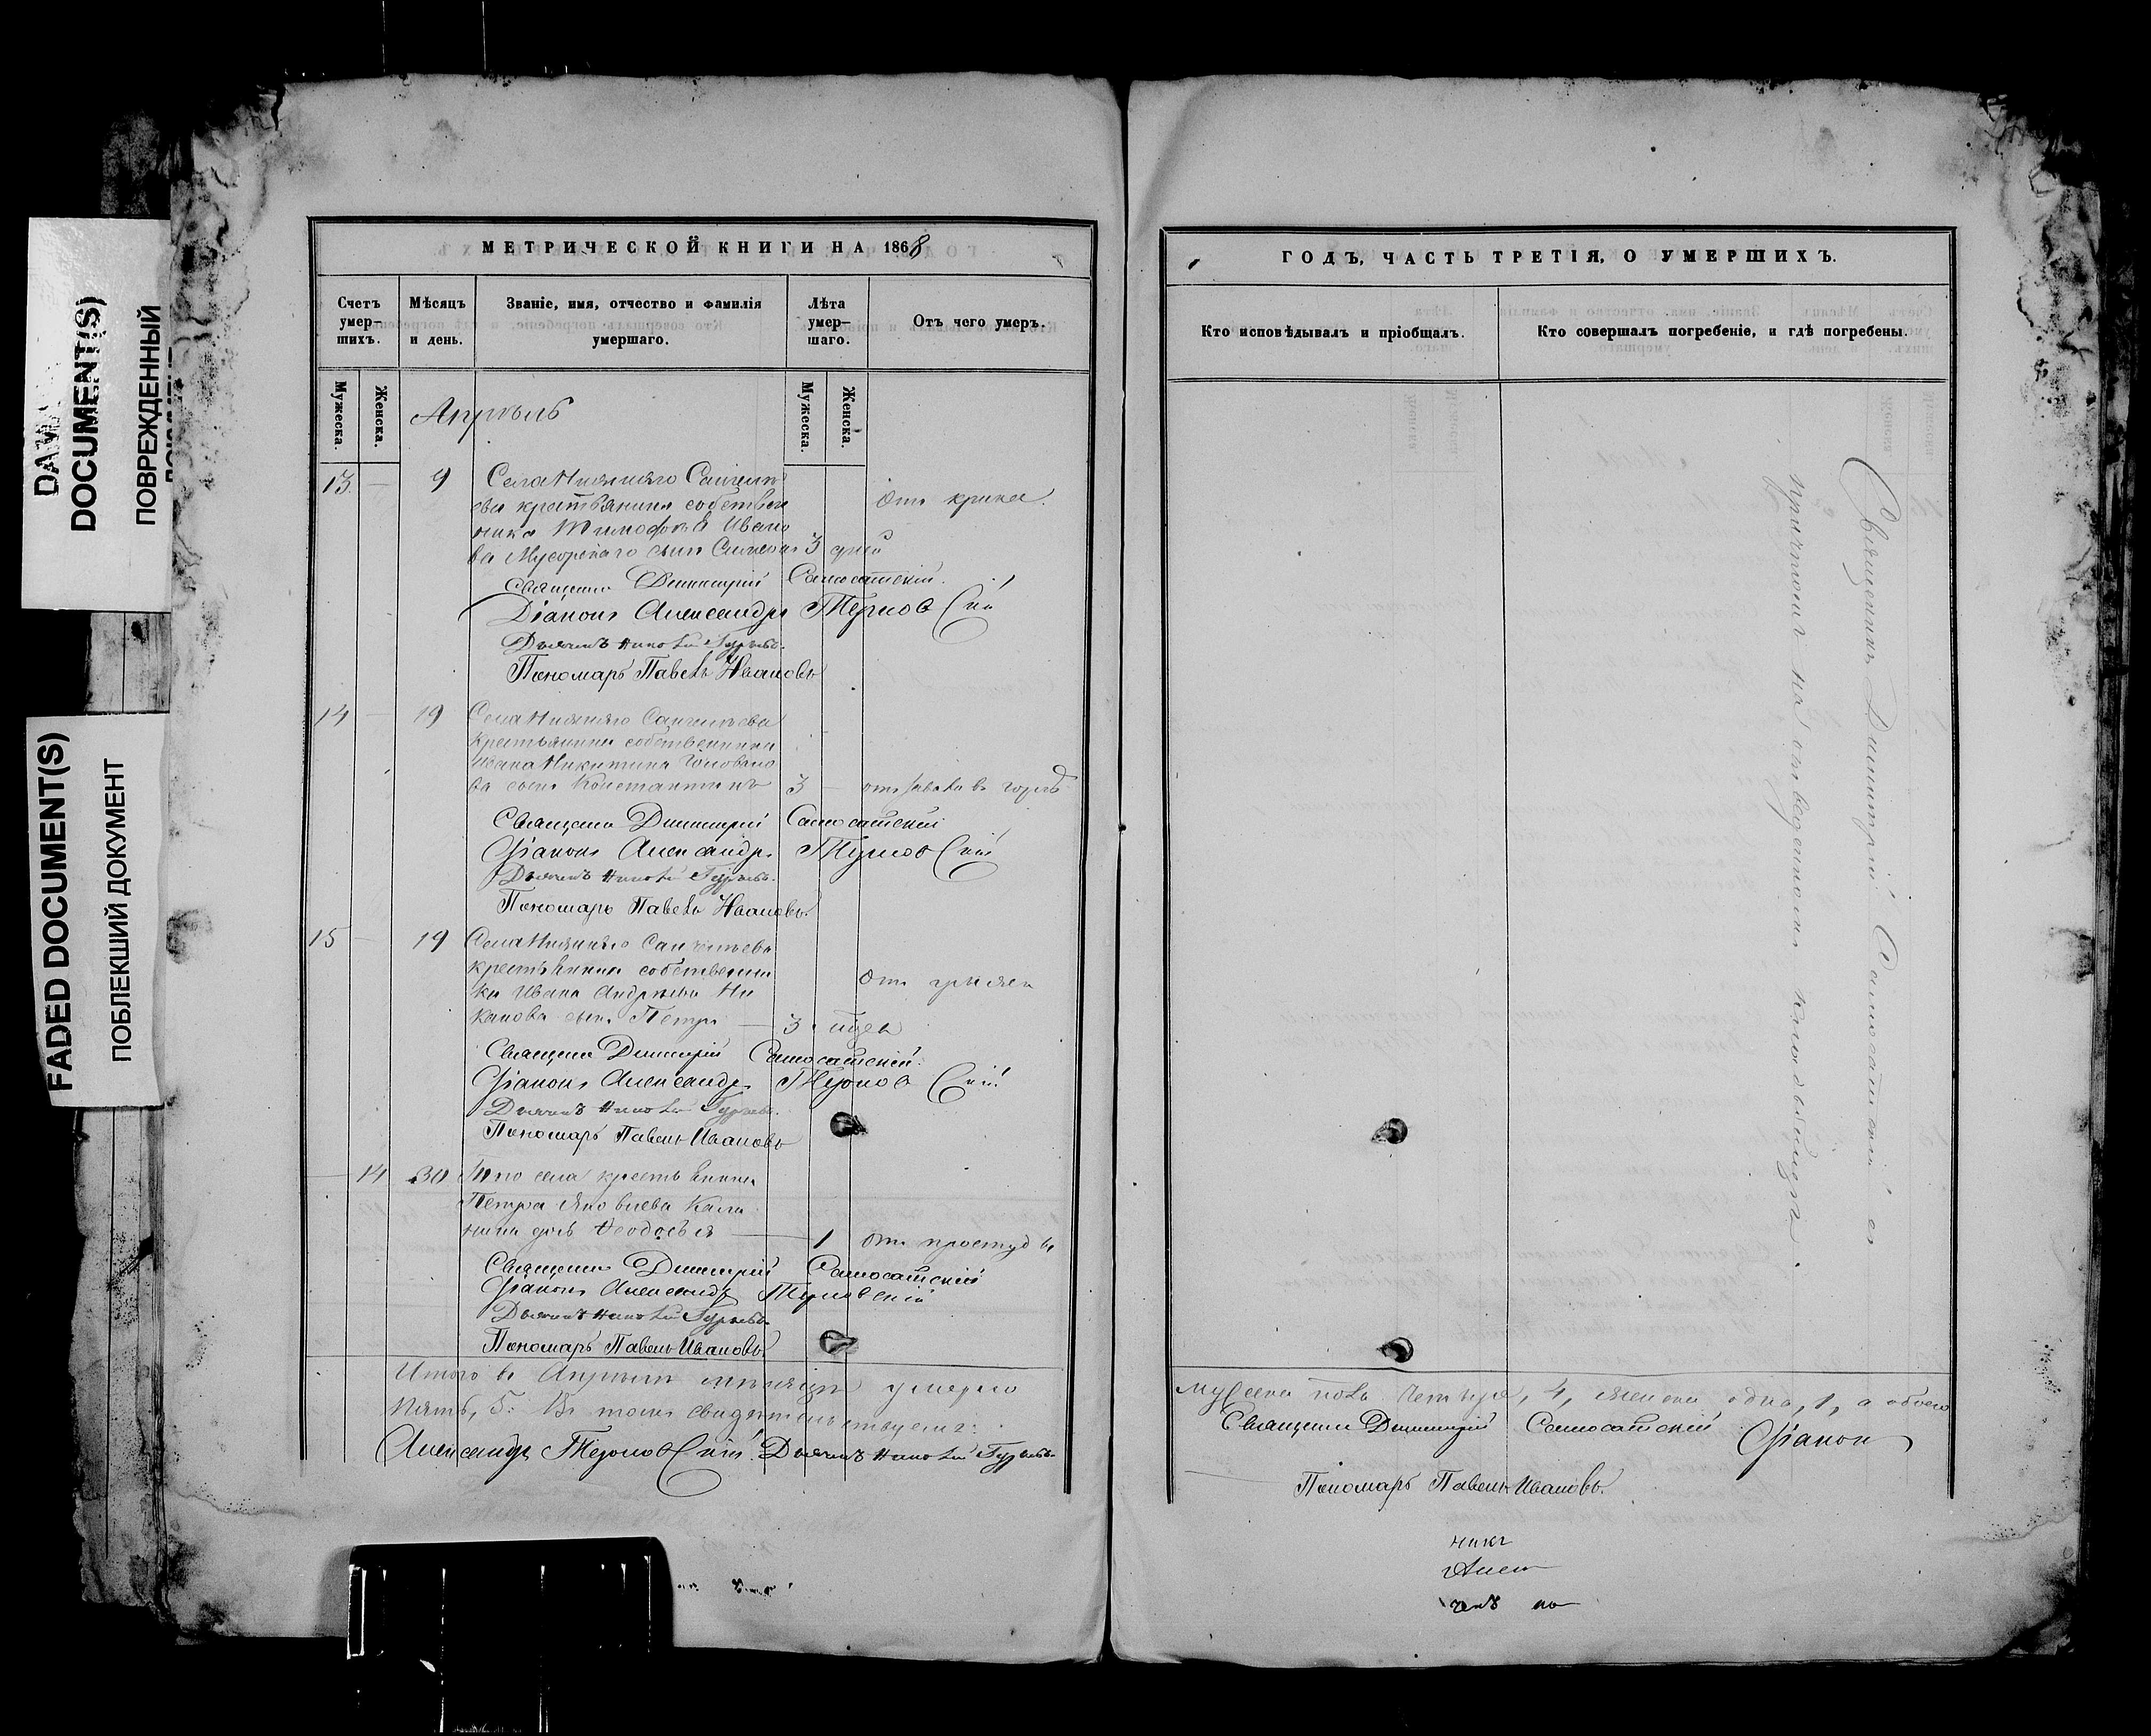 DOCUMENT(S)
ПОВРЕЖДЕННЫЙ
FADED DOCUMENT(S)
ПОБЛЕКШИЙ ДОКУМЕНТ
МЕТРИЧЕСКОЙ КНИГИ НА 1868
Счетъ умер-шихъ.
Мѣсяцъ и день.
Званіе, имя, отчество и фамилія умершаго.
Лѣта умер-шаго.
Отъ чего умеръ.
Мужеска.
Женска.
Мужеска.
Женска.
Апрѣль
13 — 9 Села Нижняго
крестьянина собствен
ника Тимофѣя Ивано
ва сынъ 3 дней
отъ крика.
Священникъ Димитрій Самосатскій.
Діаконъ Александръ Терновскій
Дьячекъ Николай Гурьевъ.
Пономарь Павелъ Ивановъ
14 — 19 Села Нижняго
крестьянина собственника
Ивана Никитина
ва сынъ Константинъ 3 —
Священникъ Димитрій Самосатскій
Діаконъ Александръ Терновскій
Дьячекъ Николай Гурьевъ.
Пономарь Павелъ Ивановъ.
15 — 19 Села Нижняго
крестьянина собственни
ка Ивана Андреева Ни
канова сынъ Петръ — 3
отъ грыжи
Священникъ Димитрій Самосатскій.
Діаконъ Александръ Терновскій
Дьячекъ Николай Гурьевъ.
Пономарь Павелъ Ивановъ
— 14 30 Того села крестьянина
Петра Яковлева Кали
нина дочь Феодосья — 1 отъ простуды
Священникъ Димитрій Самосатскій
Діаконъ Александръ Терновскій
Дьячекъ Николай Гурьевъ.
Пономарь Павелъ Ивановъ.
Итого въ Апрѣлѣ мѣсяцѣ умерло
пять, 5. Въ томъ свидѣтельствуемъ:
Александръ Терновскій. Дьячекъ Николай Гурьевъ.
ГОДЪ, ЧАСТЬ ТРЕТІЯ, О УМЕРШИХЪ.
Кто исповѣдывалъ и пріобщалъ.
Кто совершалъ погребеніе, и гдѣ погребены.
Священникъ Димитрій Самосатскій съ
причтомъ на отведенномъ кладбищѣ.
мужеска пола четыре, 4, женска одна, 1, а обоего
Священникъ Димитрій Самосатскій Діаконъ
Пономарь Павелъ Ивановъ.